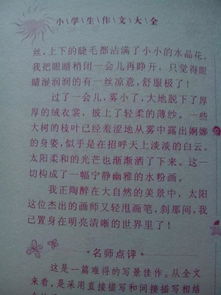 小学生作文大全
丝,上下的睫毛都沾满了小小的水晶花。
我把眼睛稍闭一会儿再睁开,只觉得眼
睛湿润润的有一丝凉意,舒服极了!
过了一会儿,雾小了,大地脱下了厚
厚的绒衣裳,披上了轻柔的薄纱。一些
大树的枝叶已经羞涩地从雾中露出婀娜
的身姿,似乎是在招呼天上淡淡的白云。
太阳柔和的光芒也渐渐洒了下来。这一
切构成了一幅宁静幽雅的水粉画。
我正陶醉在大自然的美景中,太阳
这位杰出的画师又轻甩画笔,刹那间,我
已置身在明亮清晰的世界里了!
名师点评
这是一篇难得的写景佳作。从全文
来看,是采用直接描写和间接描写相结